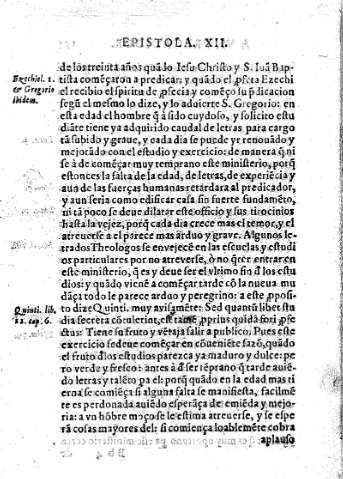 EPISTOLA. XII.
Ezechiel. 1.
& Gregorio
ibidem.
de los treinta años quãdo Iesu Christo y S. Iuã Bap-
tista comẽçaron a predicar: y quãdo el ꝓfeta Ezechi
el recibio el spiritu de ꝓfecia y comẽço su p̃dicacion
segũ el mesmo lo dize, y lo aduierte S. Gregorio: en
esta edad el hombre q̃ à sido cuydoso, y solicito estu
diãte tiene ya adquirido caudal de letras para cargo
tã subido y graue, y cada dia se puede yr renouãdo y
mejorãdo con el estudio y exercicio: de manera q̃ ni
se à de començar muy temprano este ministerio, porq̃
estonces la falta de la edad, de letras, de experiẽcia y
aun de las fuerças humanas retardara al predicador,
y aun seria como edificar casa sin fuerte fundamẽto,
ni tã poco se deue dilatar este officio y sus tirocinios
hasta la vejez, porq̃ cada dia crece mas el temor, y el
atreuerse a el parece mas arduo y graue. Algunos le-
trados Theologos se enuejecẽ en las escuelas, y estudi
os particulares por no atreuerse, o no q̃rer entrar en
este ministerio, q̃ es y deue ser el vltimo fin d̃ los estu
dios: y quãdo vienẽ a començar tarde cõ la nueua mu
dãça todo le parece arduo y peregrino: a este ꝓposi-
Quinti. lib.
12. cap. 6.
to dize Quinti. muy avisamẽte: Sed quantũ libet stu
dia secreta cõtulerint, est tamẽ ꝓprius quidã fori ꝓfe
ctus: Tiene su fruto y vẽtaja salir a publico. Pues este
exercicio se deue començar en cõueniẽte sazõ, quãdo
el fruto d̃los estudios parezca ya maduro y dulce: pe
ro verde y fresco: antes à d̃ ser tẽprano q̃ tarde auiẽ-
do letras y talẽto pa el: porq̃ quãdo en la edad mas ti
erna se comiẽça si alguna falta se manifiesta, facilmẽ
te es perdonada auiẽdo esperãça de emiẽda y mejo-
ria: a vn hõbre moço se le estima atreuerse, y se espe
rã cosas mayores del: si comiença loablemẽte cobra
aplauso